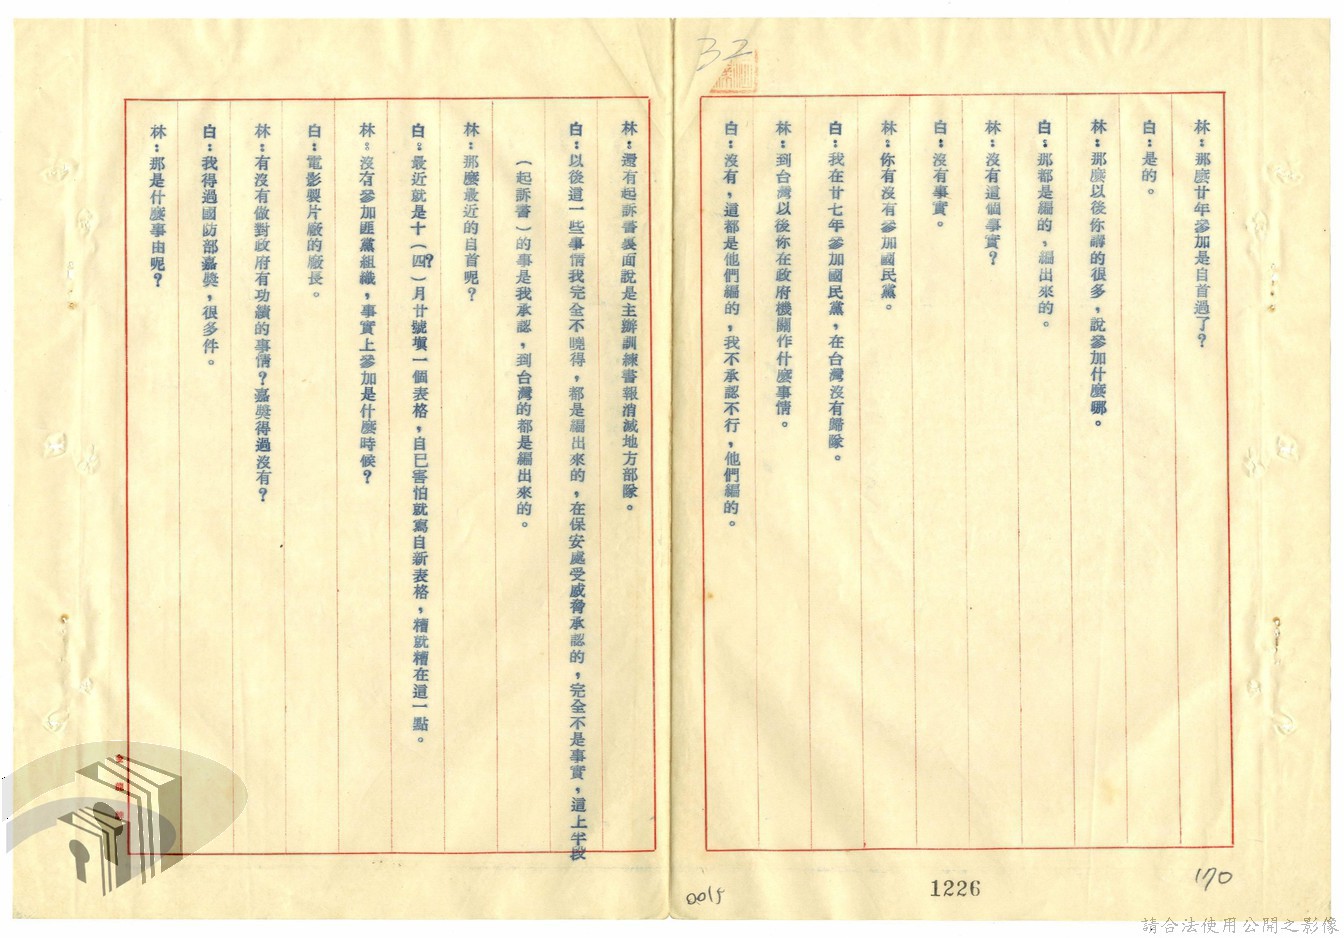 32
林：那麼廿年參加是自首過了？
白：是的。
林：那麼以後你講的很多，說參加什麼哪。
白：那都是編的，編出來的。
林：沒有這個事實？
白：沒有事實。
林：你有沒有參加國民黨。
白：我在廿七年參加國民黨，在台灣沒有歸隊。
林：到台灣以後你在政府機關作什麼事情。
白：沒有，這都是他們編的，我不承認不行，他們編的。
林：還有起訴書裏面說是主辦訓練書報消滅地方部隊。
白：以後這一些事情我完全不曉得，都是編出來的，在保安處受威脅承認的，完全不是事實，這上半段
（起訴書）的事是我承認，到台灣的都是編出來的。
林：那麼最近的自首呢？
白：最近就是十（四？）月廿號填一個表格，自己害怕就寫自新表格，糟就糟在這一點。
林：沒有參加匪黨組織，事實上參加是什麼時候？
白：電影製片廠的廠長。
林：有沒有做對政府有功績的事情？嘉獎得過沒有？
白：我得過國防部嘉獎，很多件。
林：那是什麼事由呢？
0015
1226
170
請合法使用公開之影像